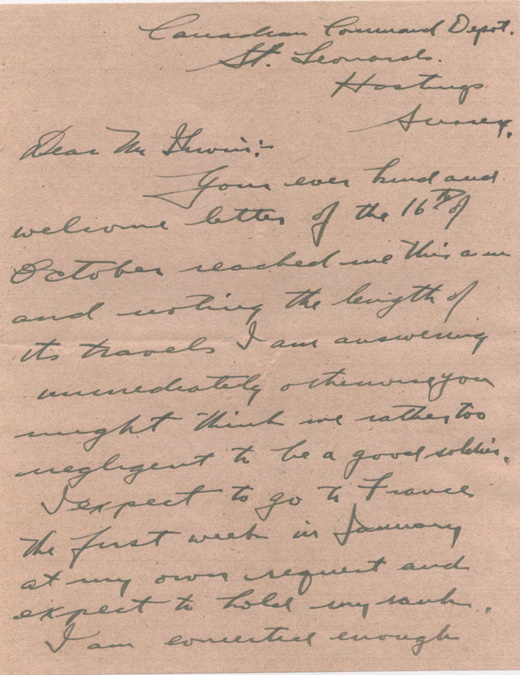 Canadian Command Depot.
St. Leonards.
Hastings
Sussex.
Dear Mr Irwin:-
Your ever kind and
welcome letter of the 16th of
October reached me this a m
and noting the length of
its travels I am answering
immediately otherwise you
might think me rather too
negligent to be a good soldier.
I expect to go to France
the first week in January
at my own request and
expect to hold my rank.
I am conceited enough